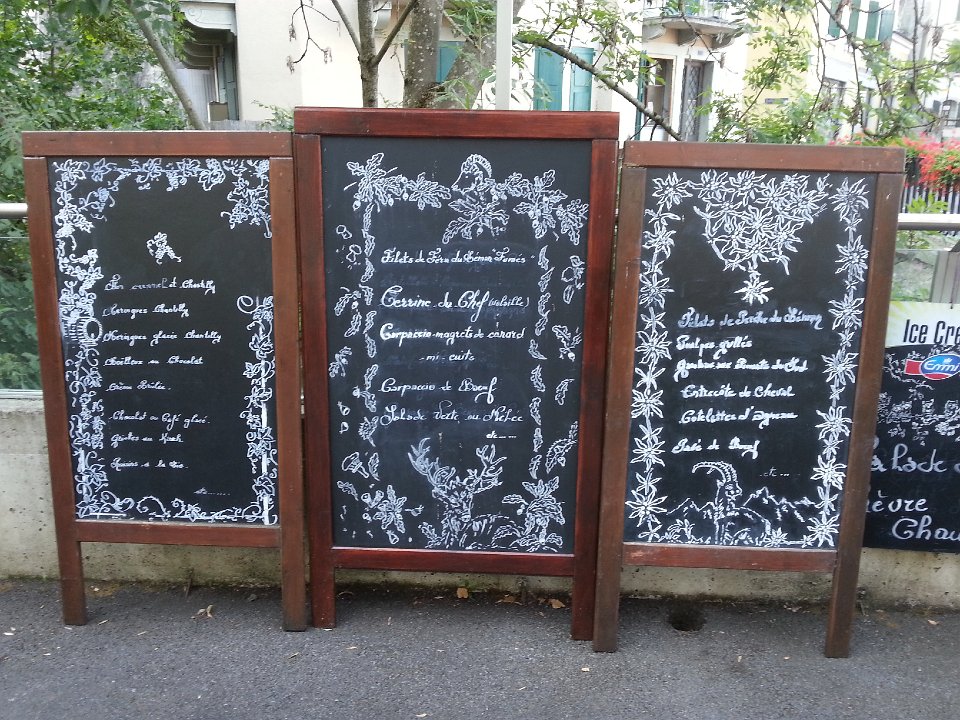 Flan caramel et Chantilly
Meringues Chantilly
Meringues glacée Chantilly
au Chocolat
Crème Brûlée.
Chocolat ou Café glacé.
au Kirsch
à la
Filets de Féra du Léman "Fumés"
Terrine du Chef (volaille)
Carpaccio magrets de canard
mi-cuits
Carpaccio de Boeuf
Salade Verte ou Mêlée
etc....
Filets de Perche du Léman
grillés
Entrecôte de Cheval
Cotelettes d'Agneau
Pavé de Boeuf
etc....
Ice Cre
Emmi
Chau